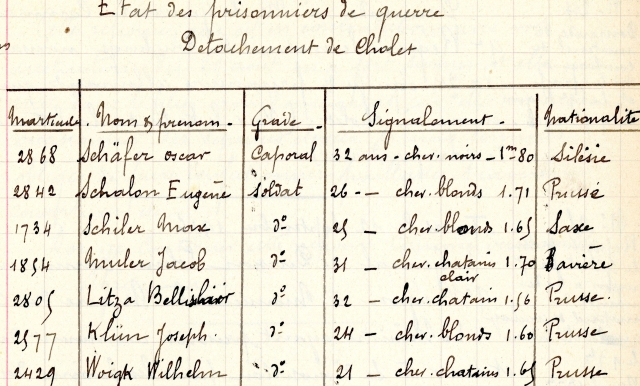 Etat des prisonniers de guerre
Detachement de Cholet
Matricule. Nom & prenom. Grade. Signalement. Nationalité
2868 Schäfer oscar Caporal 32 ans - chev. noirs - 1m80 Silésie
2842 Schalon Eugène Soldat 26 - - chev. blonds 1.71 Prusse
1734 Schiler Max do 25 - chev. blonds 1.65 Saxe
1854 Muler Jacob do 31 - chev. chatains clair 1.70 Bavière
2805 Litza do 32 - chev. chatain 1.56 Prusse.
2577 Klün Joseph. do 24 - chev. blonds 1.60 Prusse
2429 Woigk Wilhelm do 21 - chev. chatains 1.65 Prusse